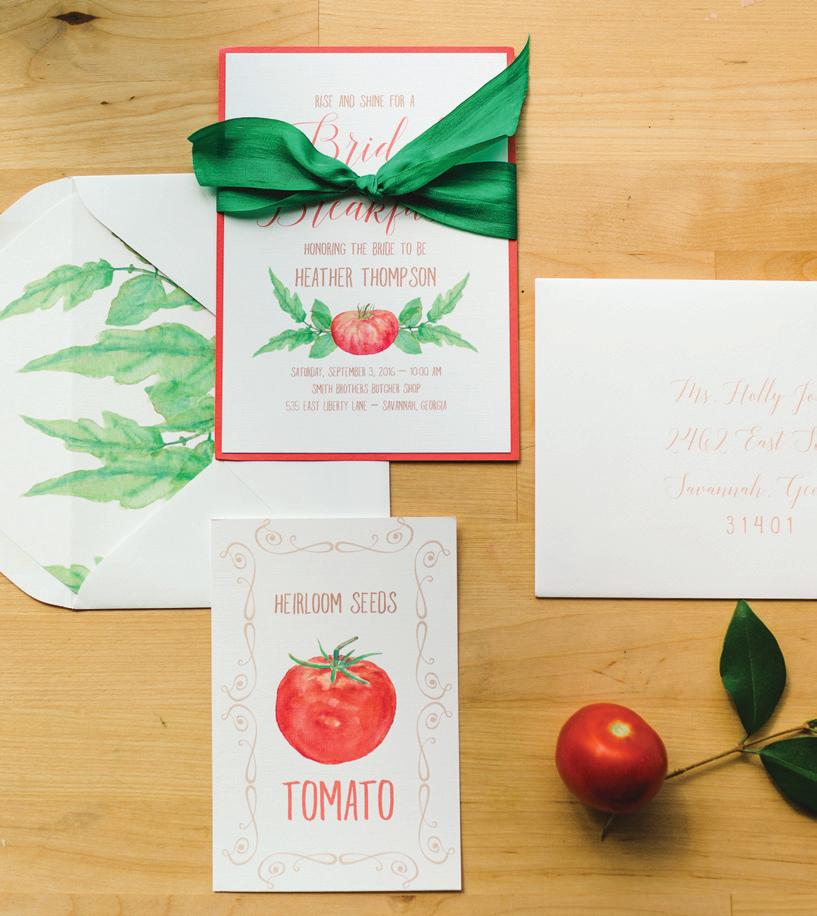 RISE AND SHINE FOR A
HONORING THE BRIDE TO BE
HEATHER THOMPSON
SATURDAY, SEPTEMBER 3, 2016 — 10:00 AM
SMITH BROTHERS BUTCHER SHOP
535 EAST LIBERTY LANE — SAVANNAH, GEORGIA
Ms. Holly
2462 East
Savannah,
31401
HEIRLOOM SEEDS
TOMATO